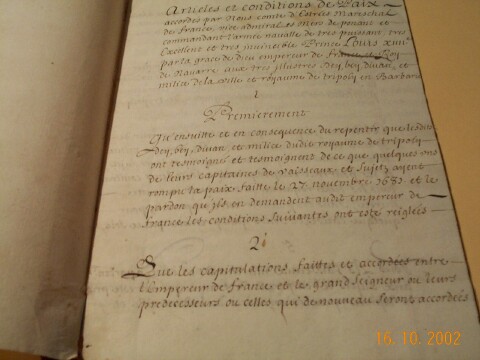 Articles et conditions de Paix
accordés par Nous comte d'Estrées Mareschal
de france, vice admiral es mers de ponant et
commandant l'armée navalle de tres puissant, tres
excellent et tres invincible Prince Louis xiiii
par la grace de dieu empereur de france et Roy
de Navarre aux tres illustres Dey, bey, divan, et
milice de la ville et royaume de tripoly en Barbarie
1
Premierement
Qu'ensuitte et en consequence du repentir que lesdits
Dey, bey, divan et milice dudit royaume de tripoly
ont tesmoigné et tesmoignent de ce que quelques uns
de leurs capitaines de vaisseaux et sujets ayent
rompu la paix faitte le 27 novembre 1681 et le
pardon qu'ils en demandent audit empereur de
france les conditions suivantes ont esté reiglées
2
Que les capitulations faittes et accordées entre
l'Empereur de france et le grand seigneur ou leurs
predecesseurs ou celles qui de nouveau seront accordées
16.10.2002